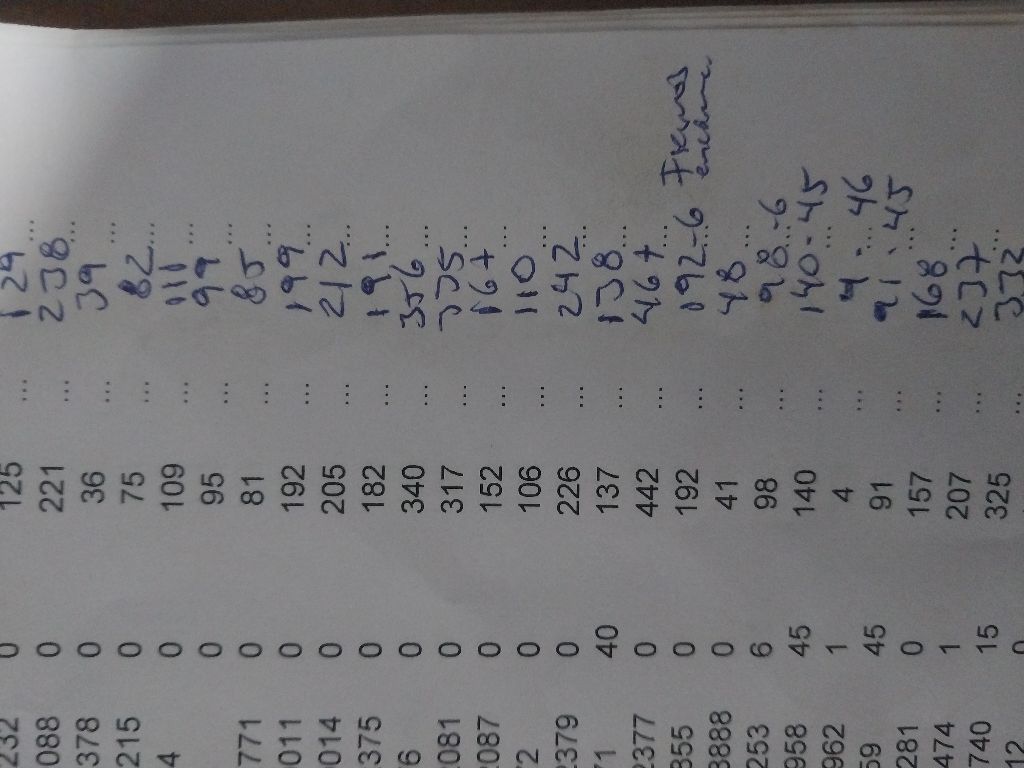 232 0 125 ... 129 ...
088 0 221 ... 238 ...
378 0 36 ... 39 ...
215 0 75 ... 82 ...
4 0 109 ... 111
0 95 ... 99 ...
771 0 81 ... 85 ...
011 0 192 ... 199 ...
014 0 205 ... 212 ...
375 0 182 ... 191 ...
6 0 340 ... 356 ...
081 0 317 ... 335 ...
087 0 152 ... 167 ...
2 0 106 ... 110 ...
379 0 226 ... 242 ...
71 40 137 ... 138 ...
2377 0 442 ... 467 ...
855 0 192 ... 192-6 ...
3888 0 41 ... 48 ...
253 6 98 ... 98-6 ...
958 45 140 ... 140-45 ...
962 1 4 ... 4.46 ...
59 45 91 ... 91.45 ...
281 0 157 ... 168 ...
474 1 207 ... 237 ...
740 15 325 ... 332 ...
12 0